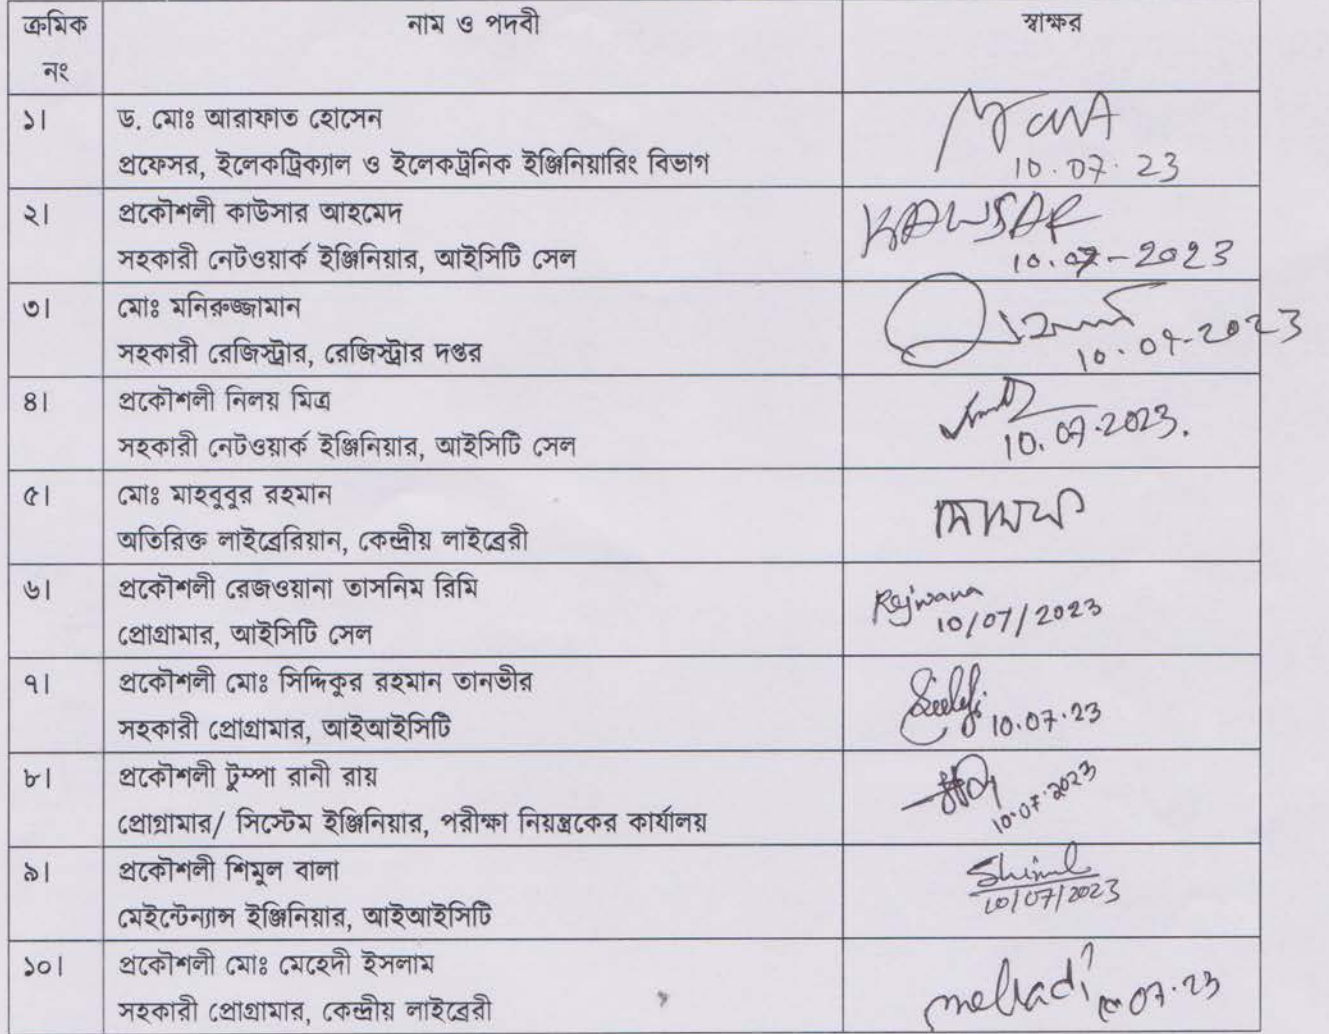 ক্রমিক নাম ও পদবী স্বাক্ষর
নং
১। ড. মোঃ আরাফাত হোসেন
প্রফেসর, ইলেকট্রিক্যাল ও ইলেকট্রনিক ইঞ্জিনিয়ারিং বিভাগ
10.07.23
২। প্রকৌশলী কাউসার আহমেদ KAWSAR
সহকারী নেটওয়ার্ক ইঞ্জিনিয়ার, আইসিটি সেল 10.07-2023
৩। মোঃ মনিরুজ্জামান
সহকারী রেজিস্ট্রার, রেজিস্ট্রার দপ্তর 10.07-2023
৪। প্রকৌশলী নিলয় মিত্র
সহকারী নেটওয়ার্ক ইঞ্জিনিয়ার, আইসিটি সেল 10.07.2023.
৫। মোঃ মাহবুবুর রহমান
অতিরিক্ত লাইব্রেরিয়ান, কেন্দ্রীয় লাইব্রেরী
৬। প্রকৌশলী রেজওয়ানা তাসনিম রিমি Rejwana
প্রোগ্রামার, আইসিটি সেল 10/07/2023
৭। প্রকৌশলী মোঃ সিদ্দিকুর রহমান তানভীর
সহকারী প্রোগ্রামার, আইআইসিটি 10.07.23
৮। প্রকৌশলী টুম্পা রানী রায়
প্রোগ্রামার/ সিস্টেম ইঞ্জিনিয়ার, পরীক্ষা নিয়ন্ত্রকের কার্যালয় 10.07.2023
৯। প্রকৌশলী শিমুল বালা Shimul
মেইন্টেন্যান্স ইঞ্জিনিয়ার, আইআইসিটি 10/07/2023
১০। প্রকৌশলী মোঃ মেহেদী ইসলাম
সহকারী প্রোগ্রামার, কেন্দ্রীয় লাইব্রেরী mehadi 07.23